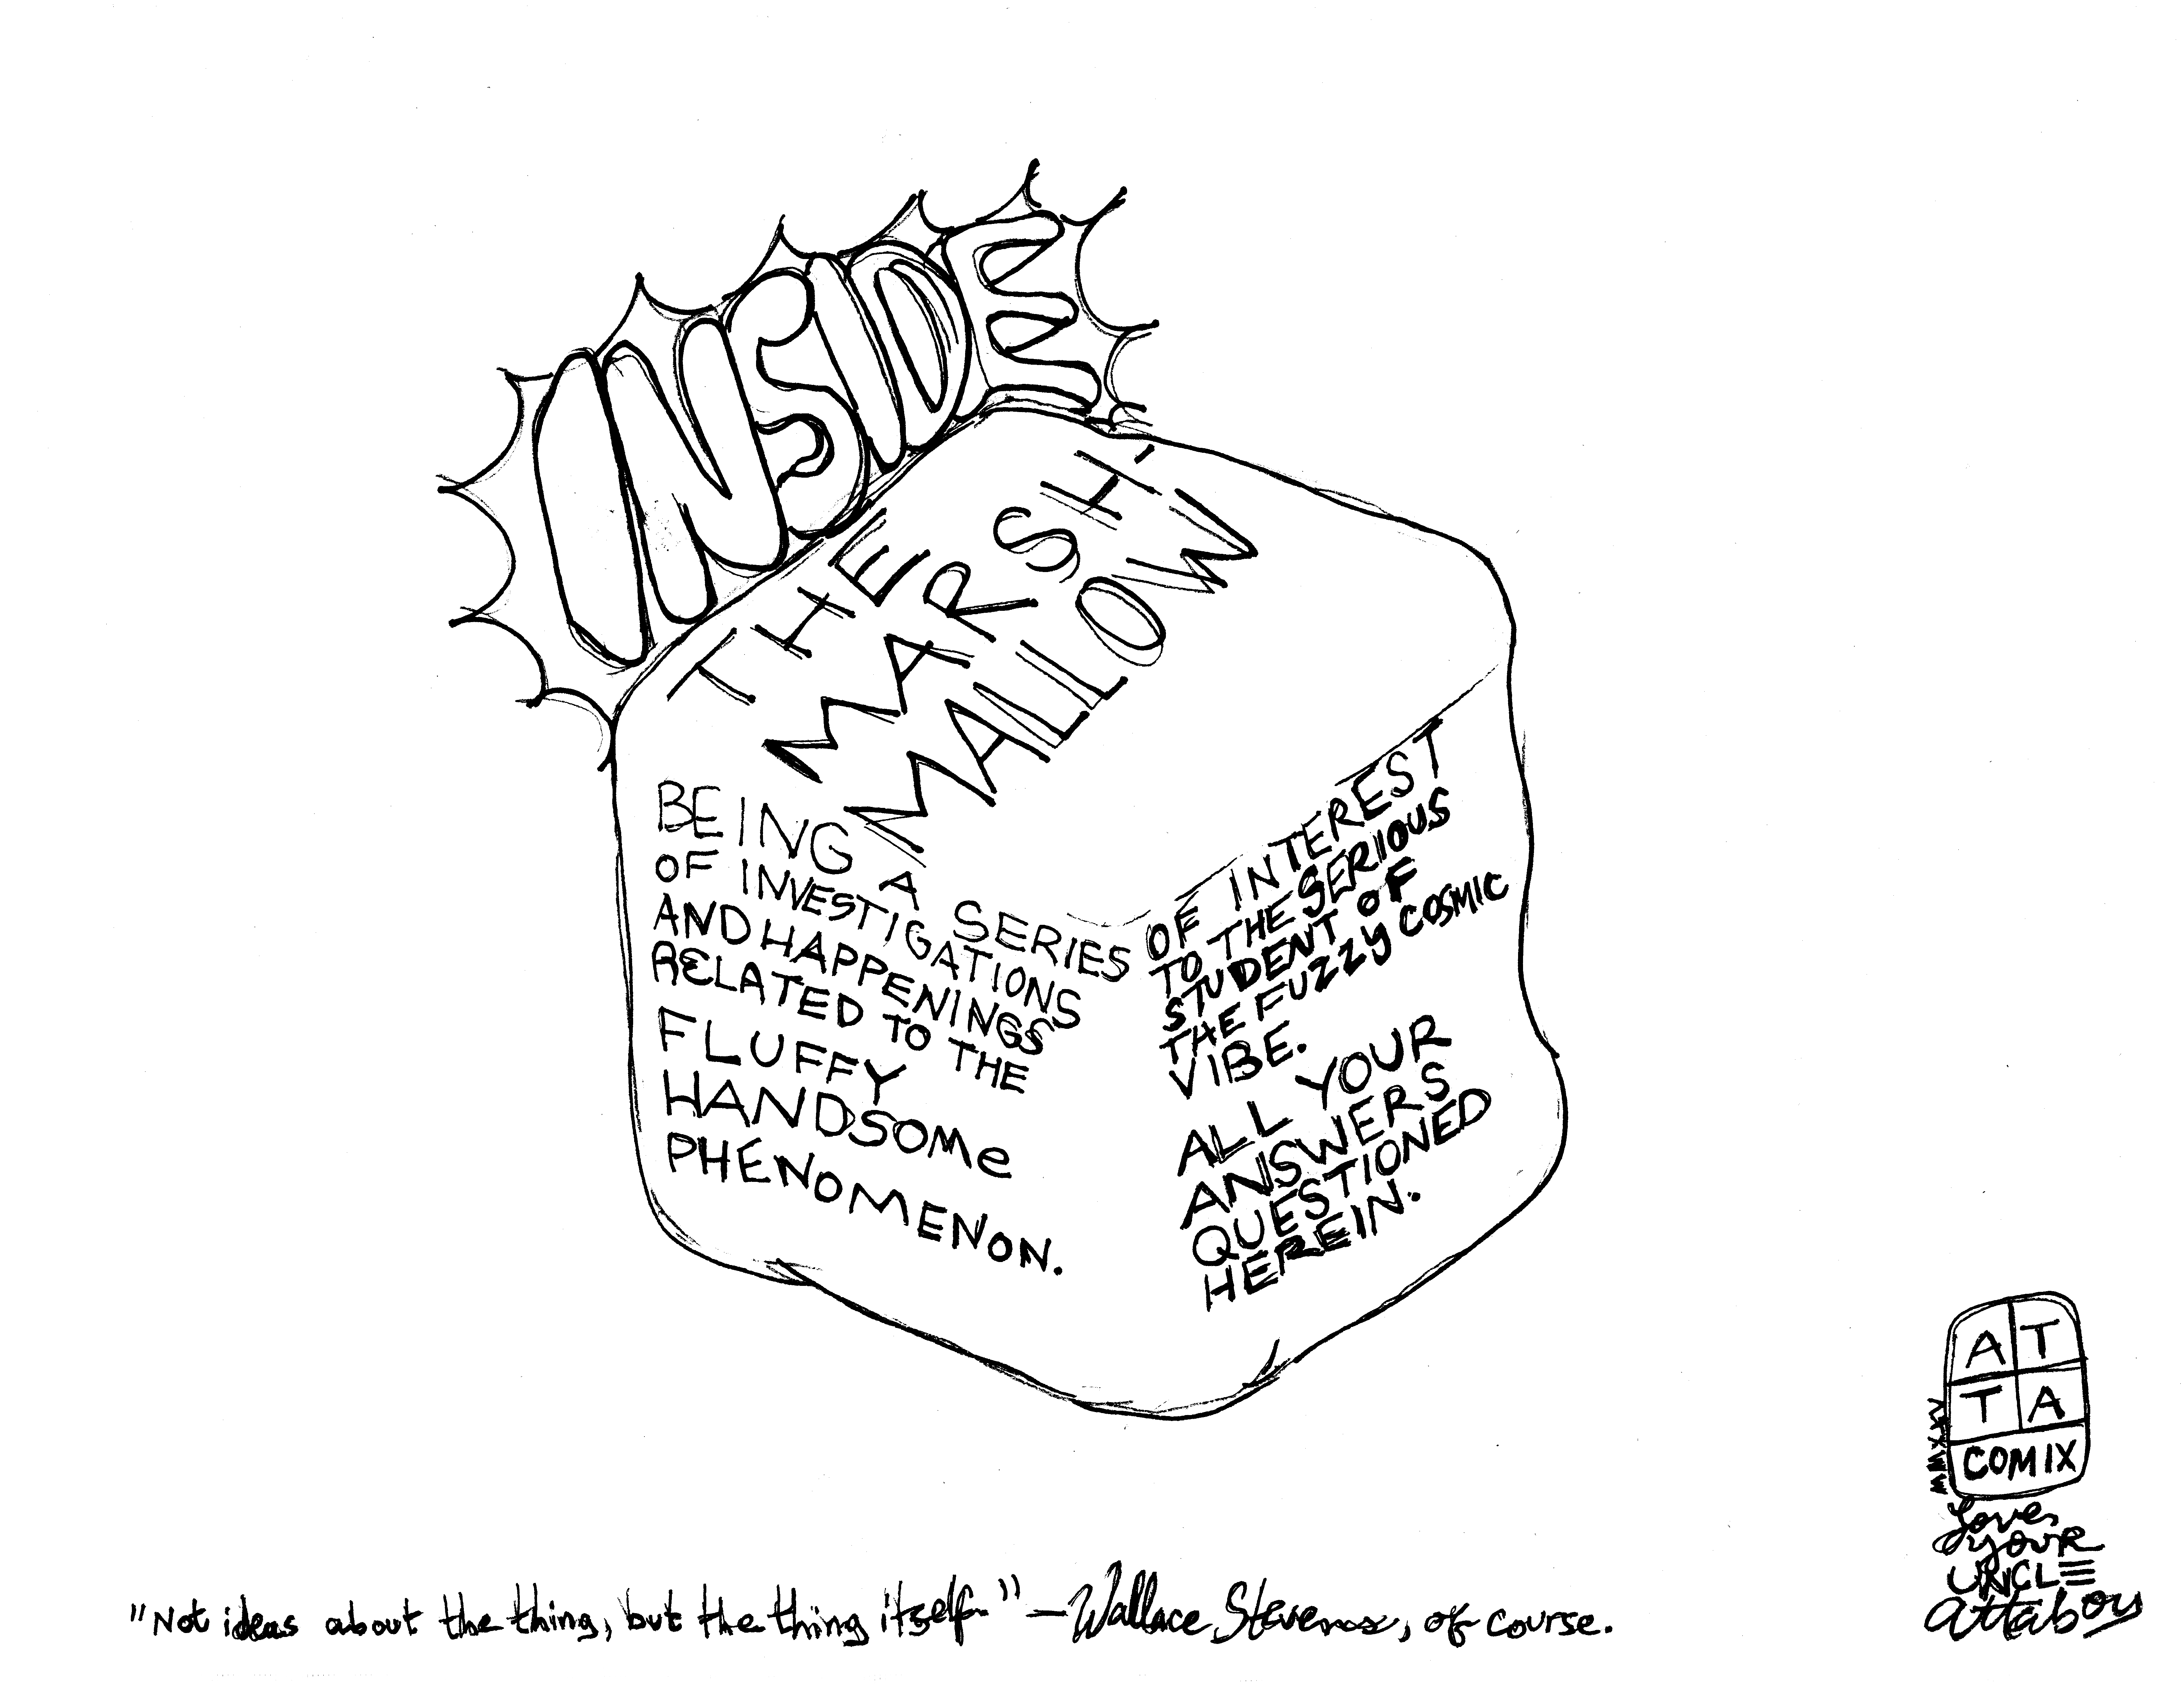 INSIDE
THE
MARSH'
MALLOW
BEING A SERIES
OF INVESTIGATIONS
AND HAPPENINGS
RELATED TO THE
FLUFFY
HANDSOMe
PHENOMENON.
OF INTEREST
TO THE SERIOUS
STUDENT OF
THE FUZZY COSMIC
VIBE.
ALL YOUR
ANSWERS
QUESTIONED
HEREIN.
"Not ideas about the thing, but the thing itself." — Wallace Stevens, of course.
AT
TA
COMIX
Loves
your
UNCLE
Attaboy